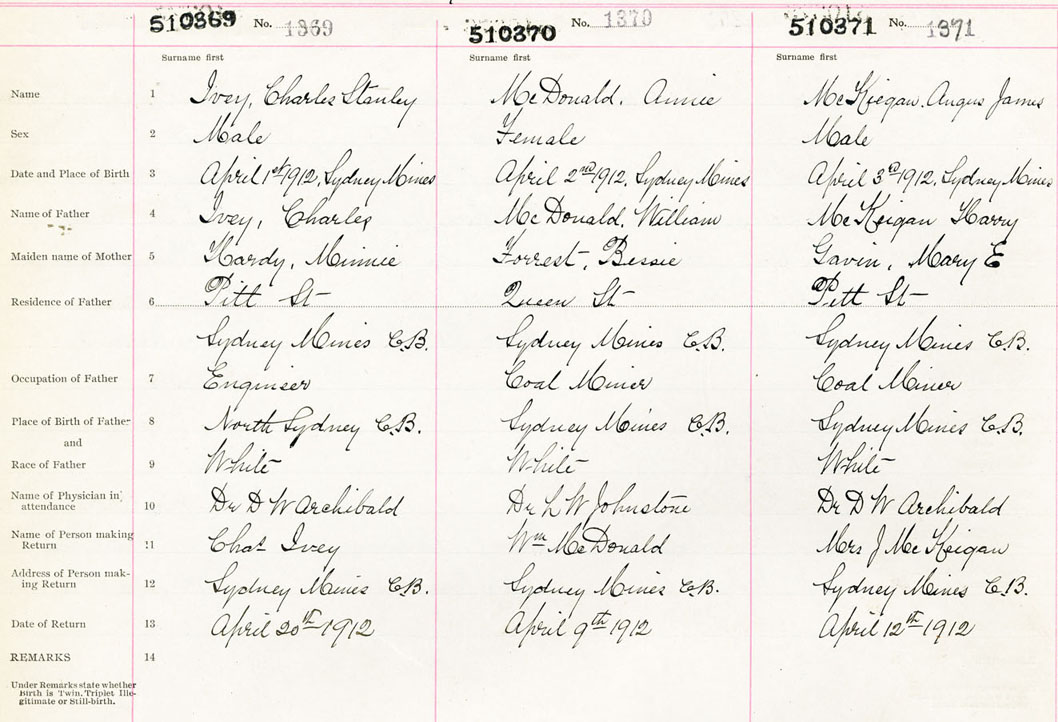 510369 No. 1369 510370 No. 1370 510371 No. 1371
Surname first Surname first Surname first
Name 1 Ivey, Charles Stanley McDonald, Annie McKeigan, Angus James
Sex 2 Male Female Male
Date and Place of Birth 3 April 1st 1912, Sydney Mines April 2nd 1912, Sydney Mines April 3rd 1912, Sydney Mines
Name of Father 4 Ivey, Charles McDonald, William McKeigan Harry
Maiden name of Mother 5 Hardy, Minnie Forrest, Bessie Gavin, Mary E
Residence of Father 6 Pitt St Queen St Pitt St
Sydney Mines C.B. Sydney Mines C.B. Sydney Mines C.B.
Occupation of Father 7 Engineer Coal Miner Coal Miner
Place of Birth of Father 8 North Sydney C.B. Sydney Mines C.B. Sydney Mines C.B.
and
Race of Father 9 White White White
Name of Physician in
attendance 10 Dr D W Archibald Dr L W Johnstone Dr D W Archibald
Name of Person making
Return 11 Chas Ivey Wm McDonald Mrs J McKeigan
Address of Person mak-
ing Return 12 Sydney Mines C.B. Sydney Mines C.B. Sydney Mines C.B.
Date of Return 13 April 20th 1912 April 9th 1912 April 12th 1912
REMARKS 14
Under Remarks state whether
Birth is Twin, Triplet Ille-
gitimate or Still-birth.